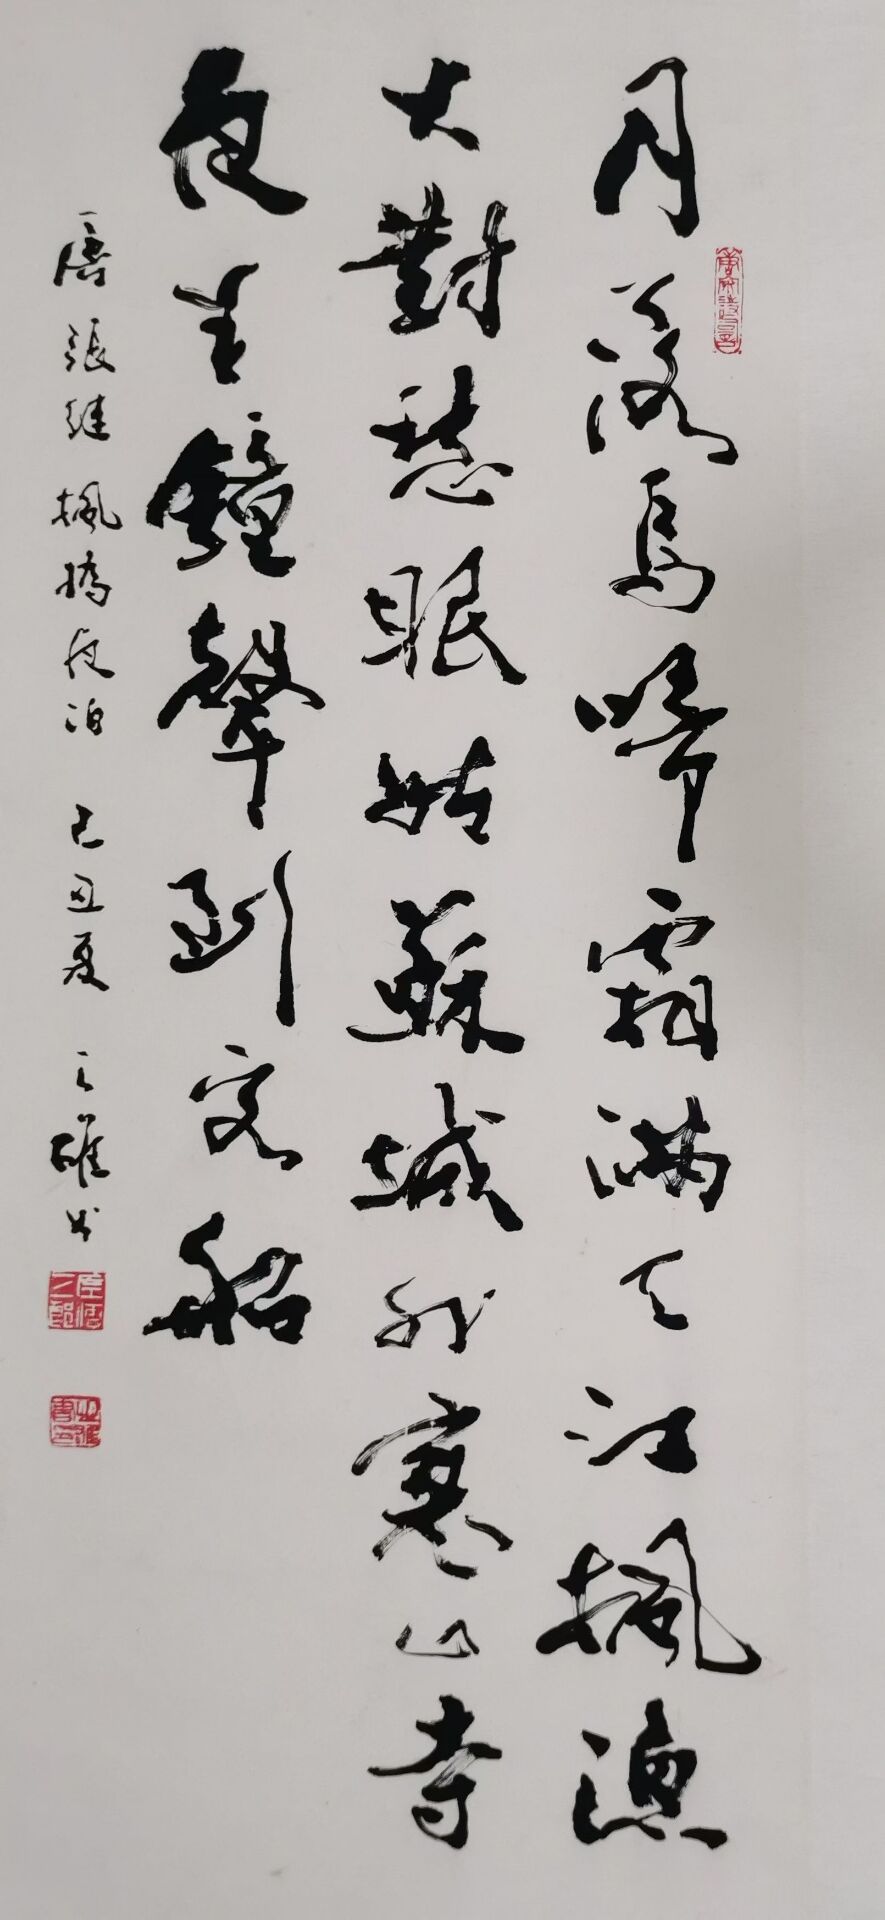 月落烏啼霜滿天江楓漁
火對愁眠姑蘇城外寒山寺
夜半鐘聲到客船
唐張继楓橋夜泊 己丑夏 之雄书